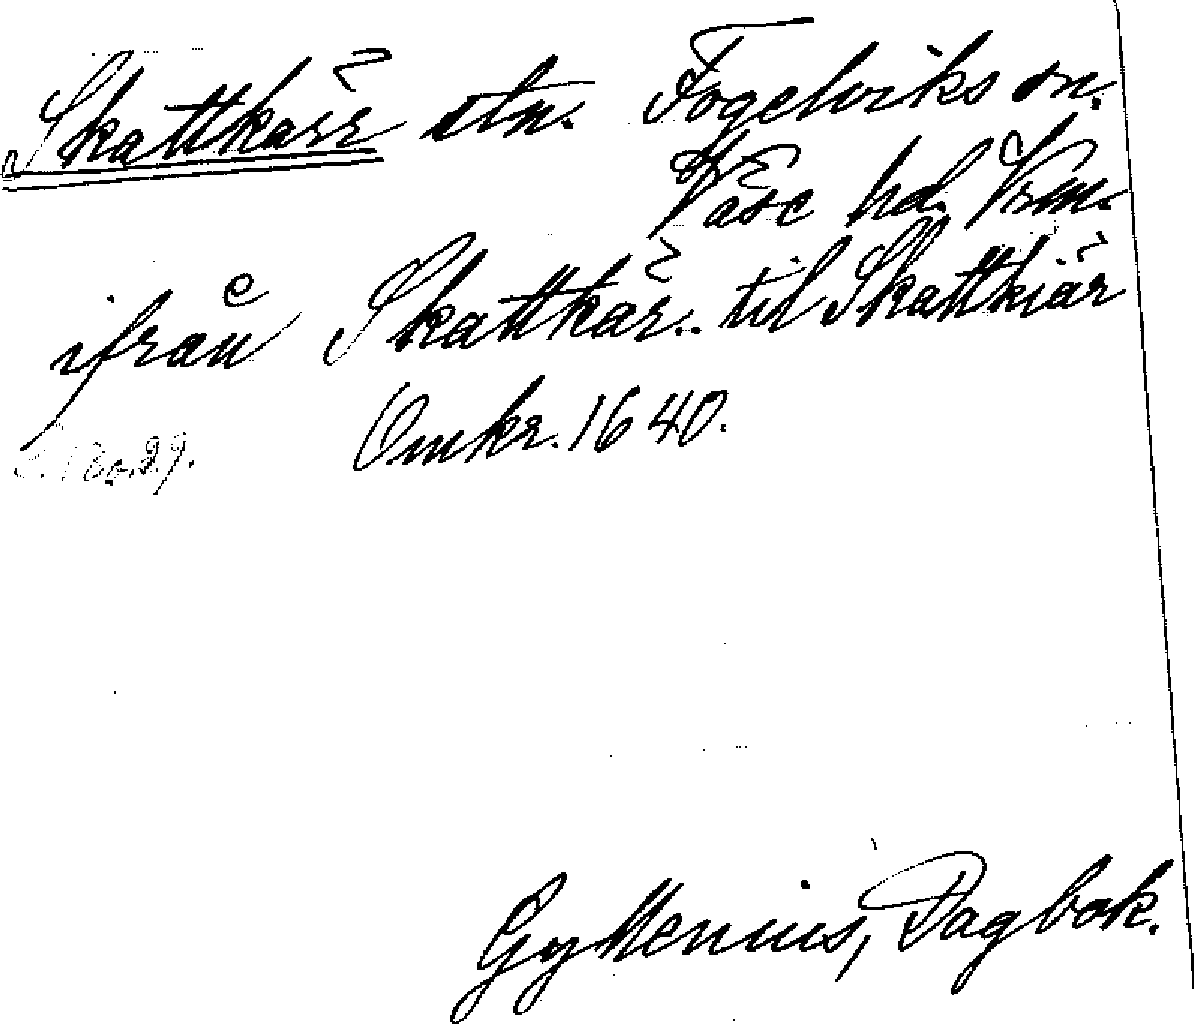 Skattkärr stn. Fogelviks sn.
Väse hd. Vrm.
ifrån Skattkär.. til Skattkiär
Omkr. 1640.
Gyllenius, Dagbok.